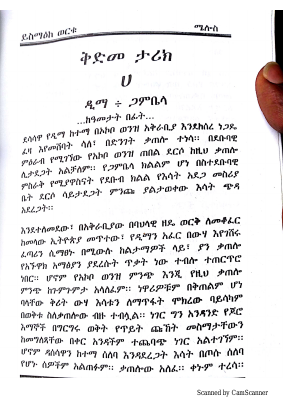 ይስማዕከ ወርቁ ሜሎስ
ቅድመ ታሪክ
ሀ
ዲማ ÷ ጋምቤላ
...ከዓመታት በፊት...
ደሳሳዋ የዲማ ከተማ በአኮቦ ወንዝ አቅራቢያ እንደከሰረ ነጋዴ
ፈዛ እየመሸባት ሳለ፣ በድንገት ቃጠሎ ተነሳ። በደቡባዊ
ምዕራብ የሚገኘው የአኮቦ ወንዝ ጠበል ደርሶ ከዚህ ቃጠሎ
ሊታደጋት አልቻለም። የጋምቤላ ክልልም ሆነ በስተደቡባዊ
ምስራቅ የሚያዋስናት የደቡብ ክልል የእሳት አደጋ መስሪያ
ቤት ደርሶ ሳይታደጋት ምንጩ ያልታወቀው እሳት ጭዳ
አደረጋት።
እንደተለመደው፣ በአቅራቢያው በባህላዊ ዘዴ ወርቅ ለመቆፈር
ከመላው ኢትዮጵያ መጥተው፣ የዲማን አፈር በውሃ እየገሸሩ
ፈጣሪን ሲማፀኑ በሚውሉ ከልታማዎች ላይ፣ ያን ቃጠሎ
የአኙዋክ አማፅያን ያደረሱት ጥቃት ነው ተብሎ ተጠርጥሮ
ነበር። ሆኖም የአኮቦ ወንዝ ምንጭ እንጂ የዚህ ቃጠሎ
ምንጭ ከጉምጉምታ አላለፈም። ነዋሪዎቹም በቅጠልም ሆነ
ባላቸው ቅሪት ውሃ እሳቱን ለማጥፋት ሞክረው ባይሳካም
በወቅቱ ስለቃጠሎው ብዙ ተብሏል። ነገር ግን አንዳንድ የጆሮ
እማኞች በግርግሩ ወቅት የጥይት ጩኸት መስማታቸውን
ከመግለጻቸው በቀር አንዳችም ተጨባጭ ነገር አልተገኘም።
ሆኖም ዳስሳዋን ከተማ ሰለባ እንዳደረጋት እሳት በጦሱ ሰለባ
የሆኑ ሰዎችም አልጠፉም። ቃጠሎው አለፈ። ቀኑም ተረሳ።
Scanned by CamScanner